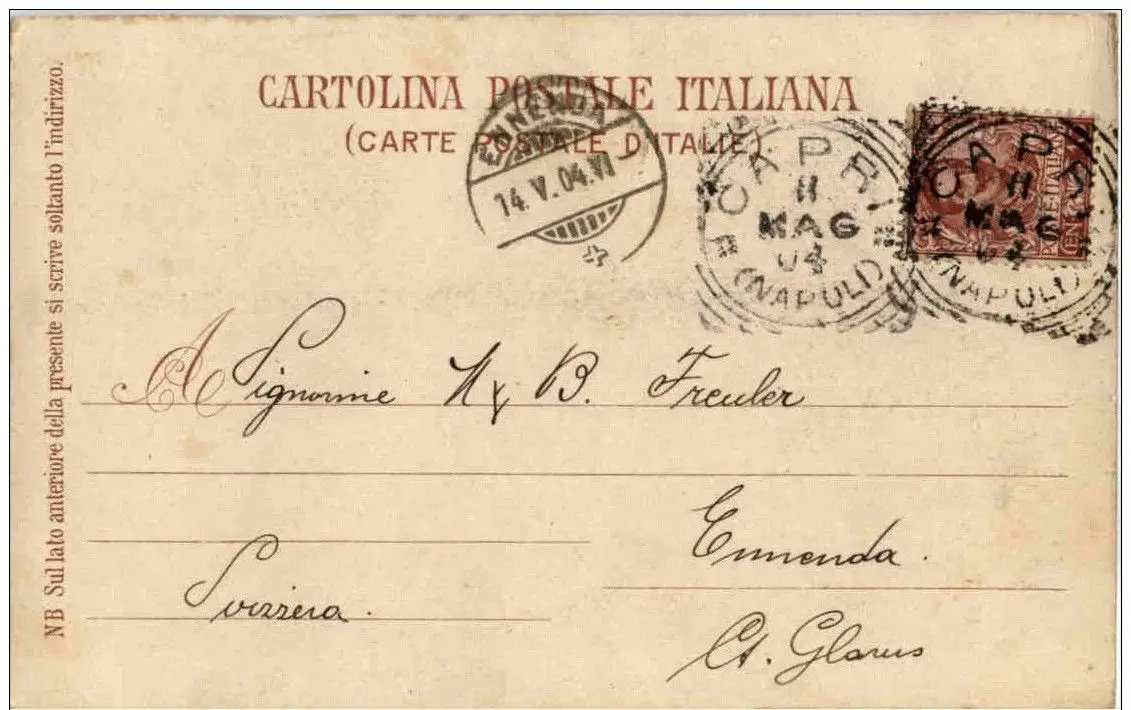 CARTOLINA POSTALE ITALIANA
(CARTE POSTALE D'ITALIE)
ENNENDA
14.V.04.VI
CAPRI
11
MAG
04
(NAPOLI)
CAPRI
11
MAG
04
(NAPOLI)
A Signorine N & B. Freuler
Ennenda.
Svizzera.
Ct. Glarus
NB Sul lato anteriore della presente si scrive soltanto l'indirizzo.